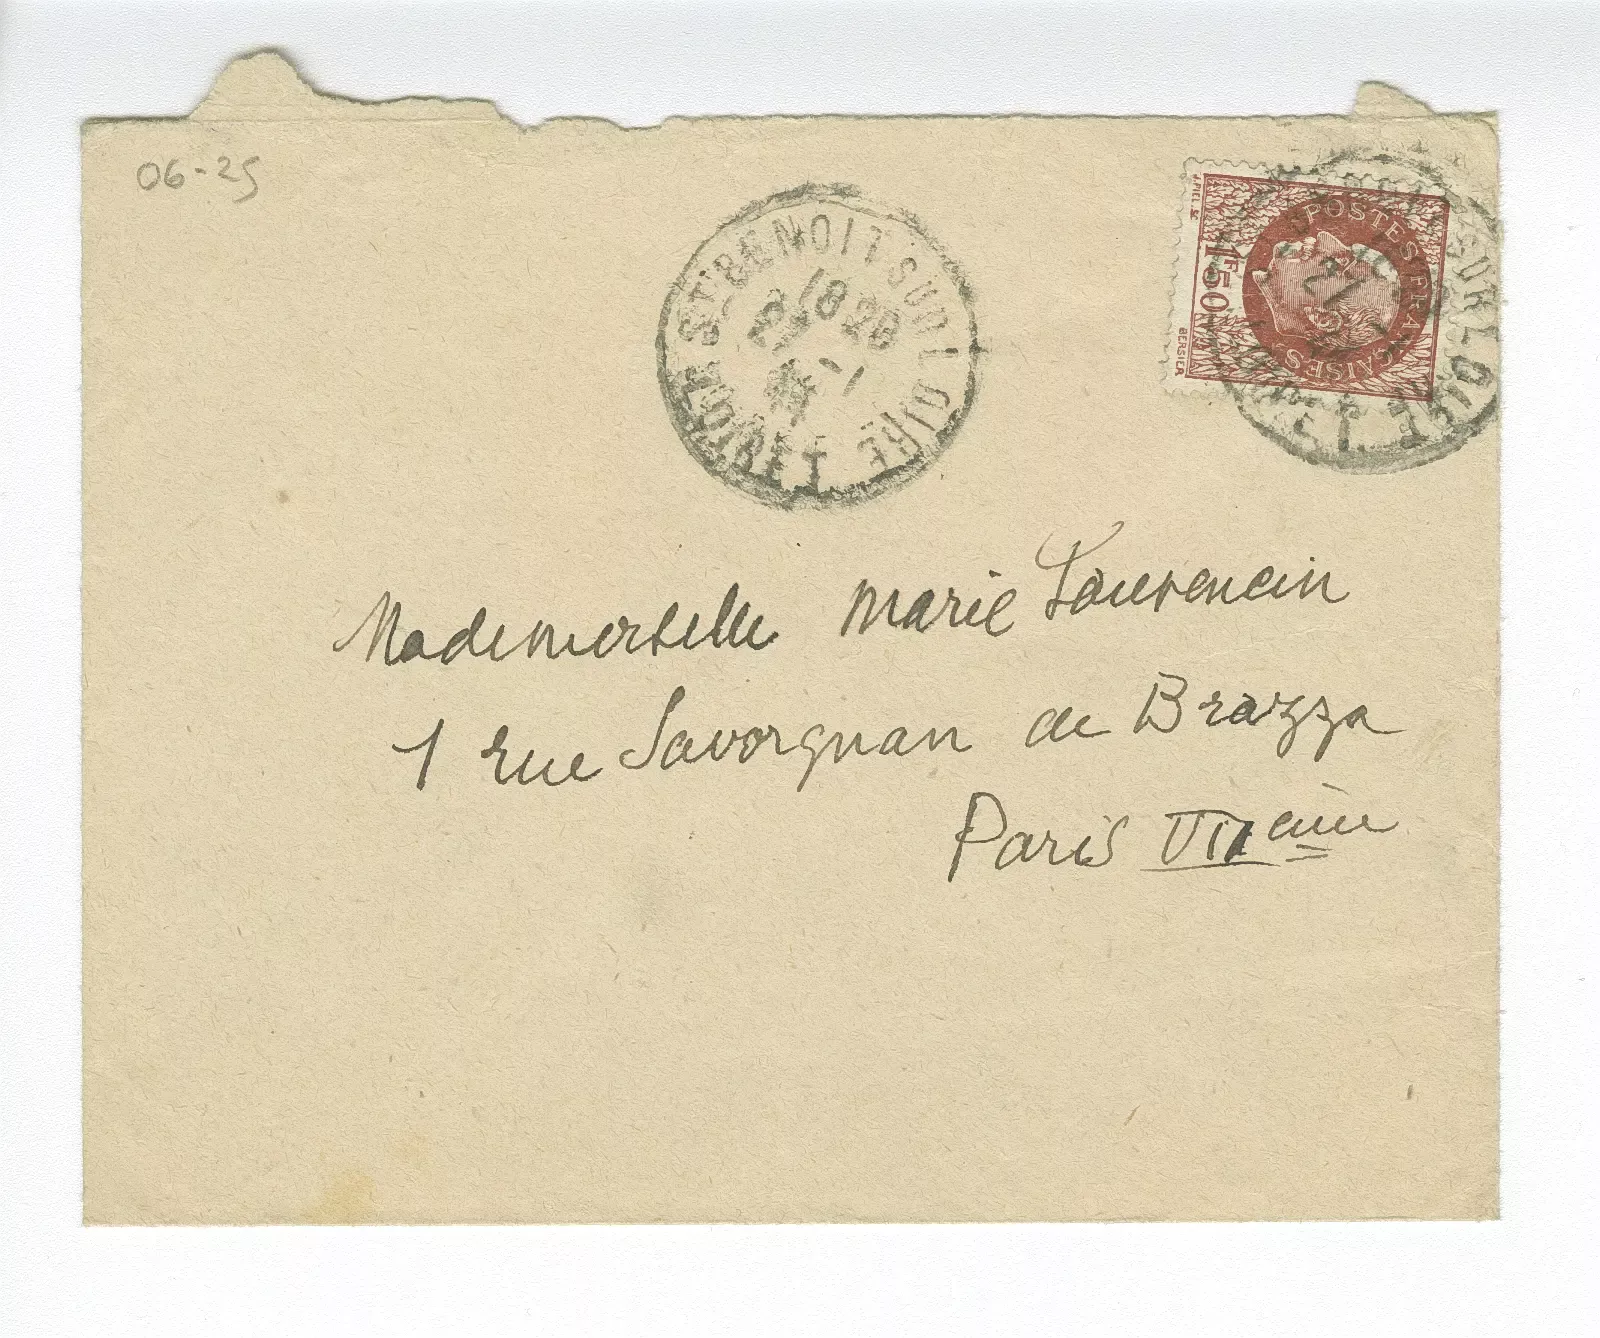 06-25
ST BENOIT SUR LOIRE
18 20
LOIRET
POSTES FRANÇAISES
1F50
BERSIER
SUR LOIRE
Mademoiselle Marie Laurencin
1 rue Savorgnan de Brazza
Paris VII eme